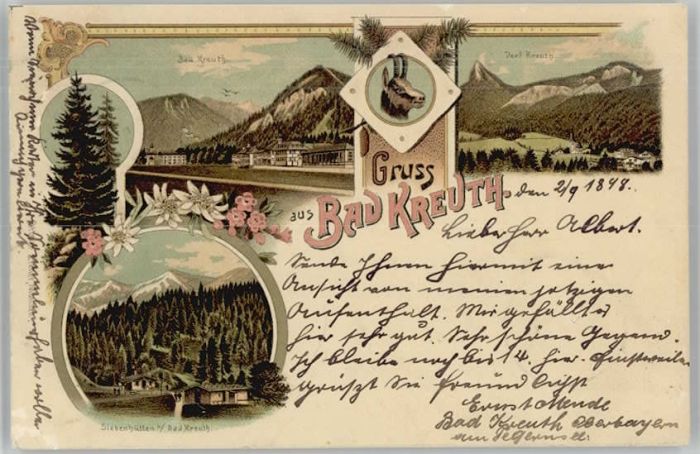 Bad Kreuth.
Dorf Kreuth.
Gruss
aus
BAD KREUTH.
den 2/9 1898.
Lieber Herr Albert.
Sende Ihnen hiermit eine
Ansicht von meinen jetzigen
Aufenthalt. Mir gefällt es
hier sehr gut. Sehr schöne Gegend.
Ich bleibe noch bis 14. hier. Einstweilen
grüszt Sie freundlichst
Ernst Mende
Bad Kreuth Oberbayern
am Tegernsee.
Siebenhütten b/ Bad Kreuth.